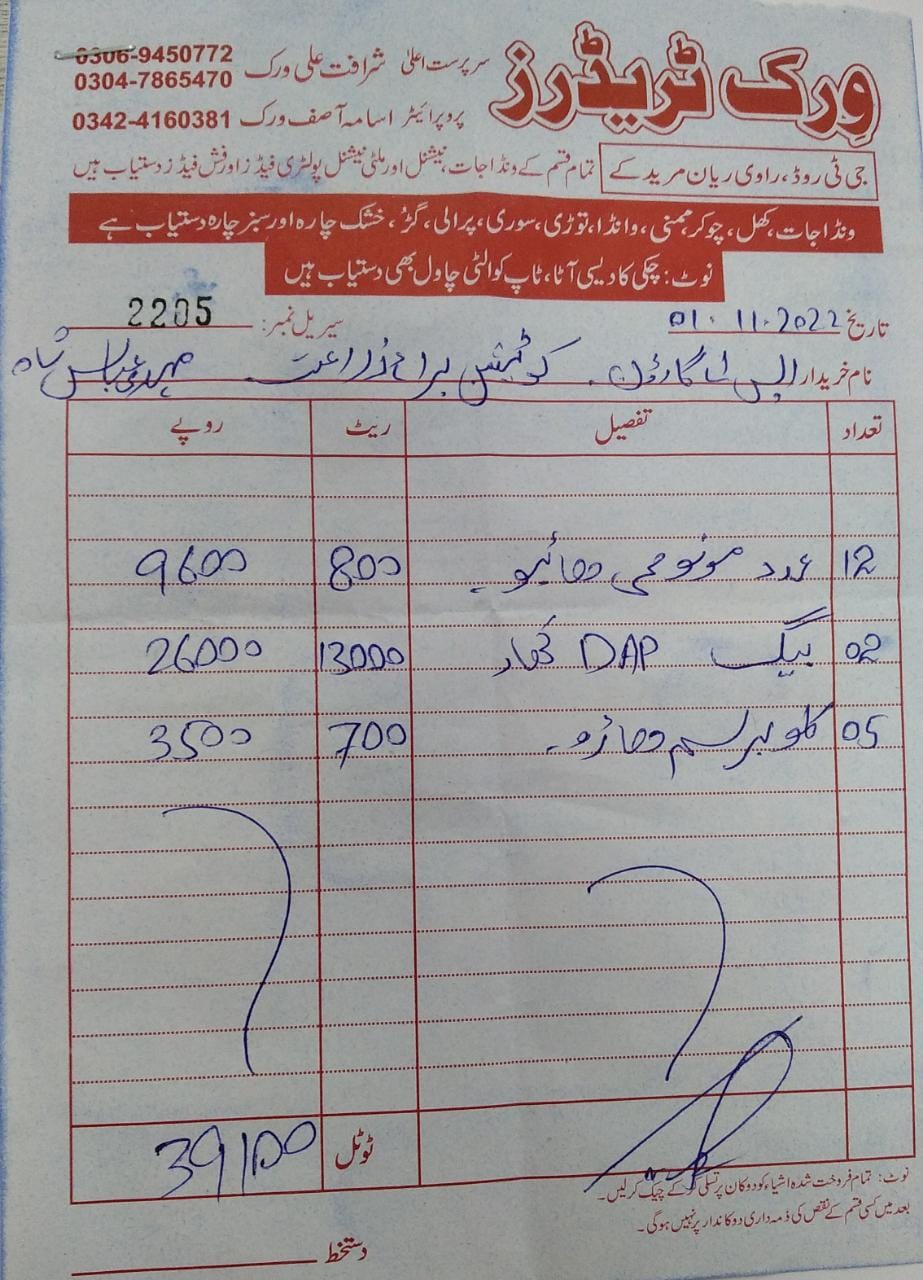 ورک ٹریڈرز
سرپرست اعلیٰ شرافت علی ورک 0306-9450772
0304-7865470
پروپرائیٹر اسامہ آصف ورک 0342-4160381
جی ٹی روڈ، راوی ریان مرید کے تمام قسم کے ونڈا جات، نیشنل اور ملٹی نیشنل پولٹری فیڈز اور فش فیڈز دستیاب ہیں
ونڈا جات، کھل، چوکر، مکئی، وانڈا، توڑی، سوری، پرالی، گڑ، خشک چارہ اور سبز چارہ دستیاب ہے
نوٹ: چکی کا دیسی آٹا، ٹاپ کوالٹی چاول بھی دستیاب ہیں
تاریخ 01.11.2022 سیریل نمبر: 2205
نام خریدار کوٹیشن برائے زراعت مہدی عباس شاہ
تعداد تفصیل ریٹ روپے
12 عدد 800 9600
02 بیگ DAP کھاد 13000 26000
05 کلو برسیم 700 3500
ٹوٹل 39100
نوٹ: تمام فروخت شدہ اشیاء کو دوکان پر تسلی کر کے چیک کر لیں۔
بعد میں کسی قسم کے نقص کی ذمہ داری دوکاندار پر نہیں ہوگی۔
دستخط